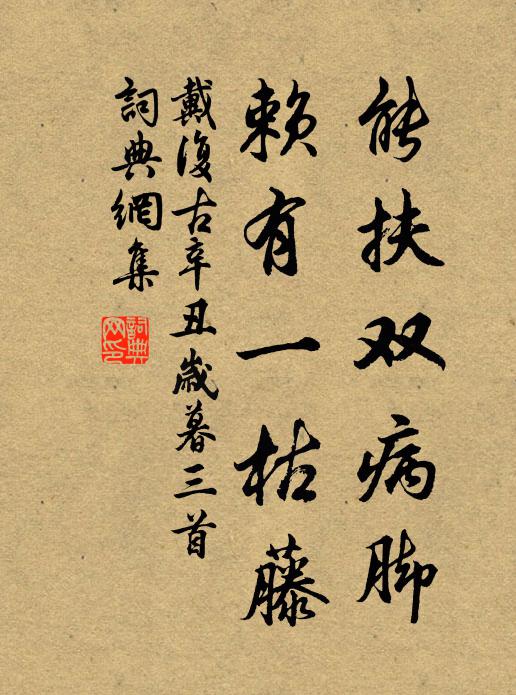 能扶双病脚
赖有一枯藤
戴復古辛丑歲暮三首
詞典網集
詞典網印